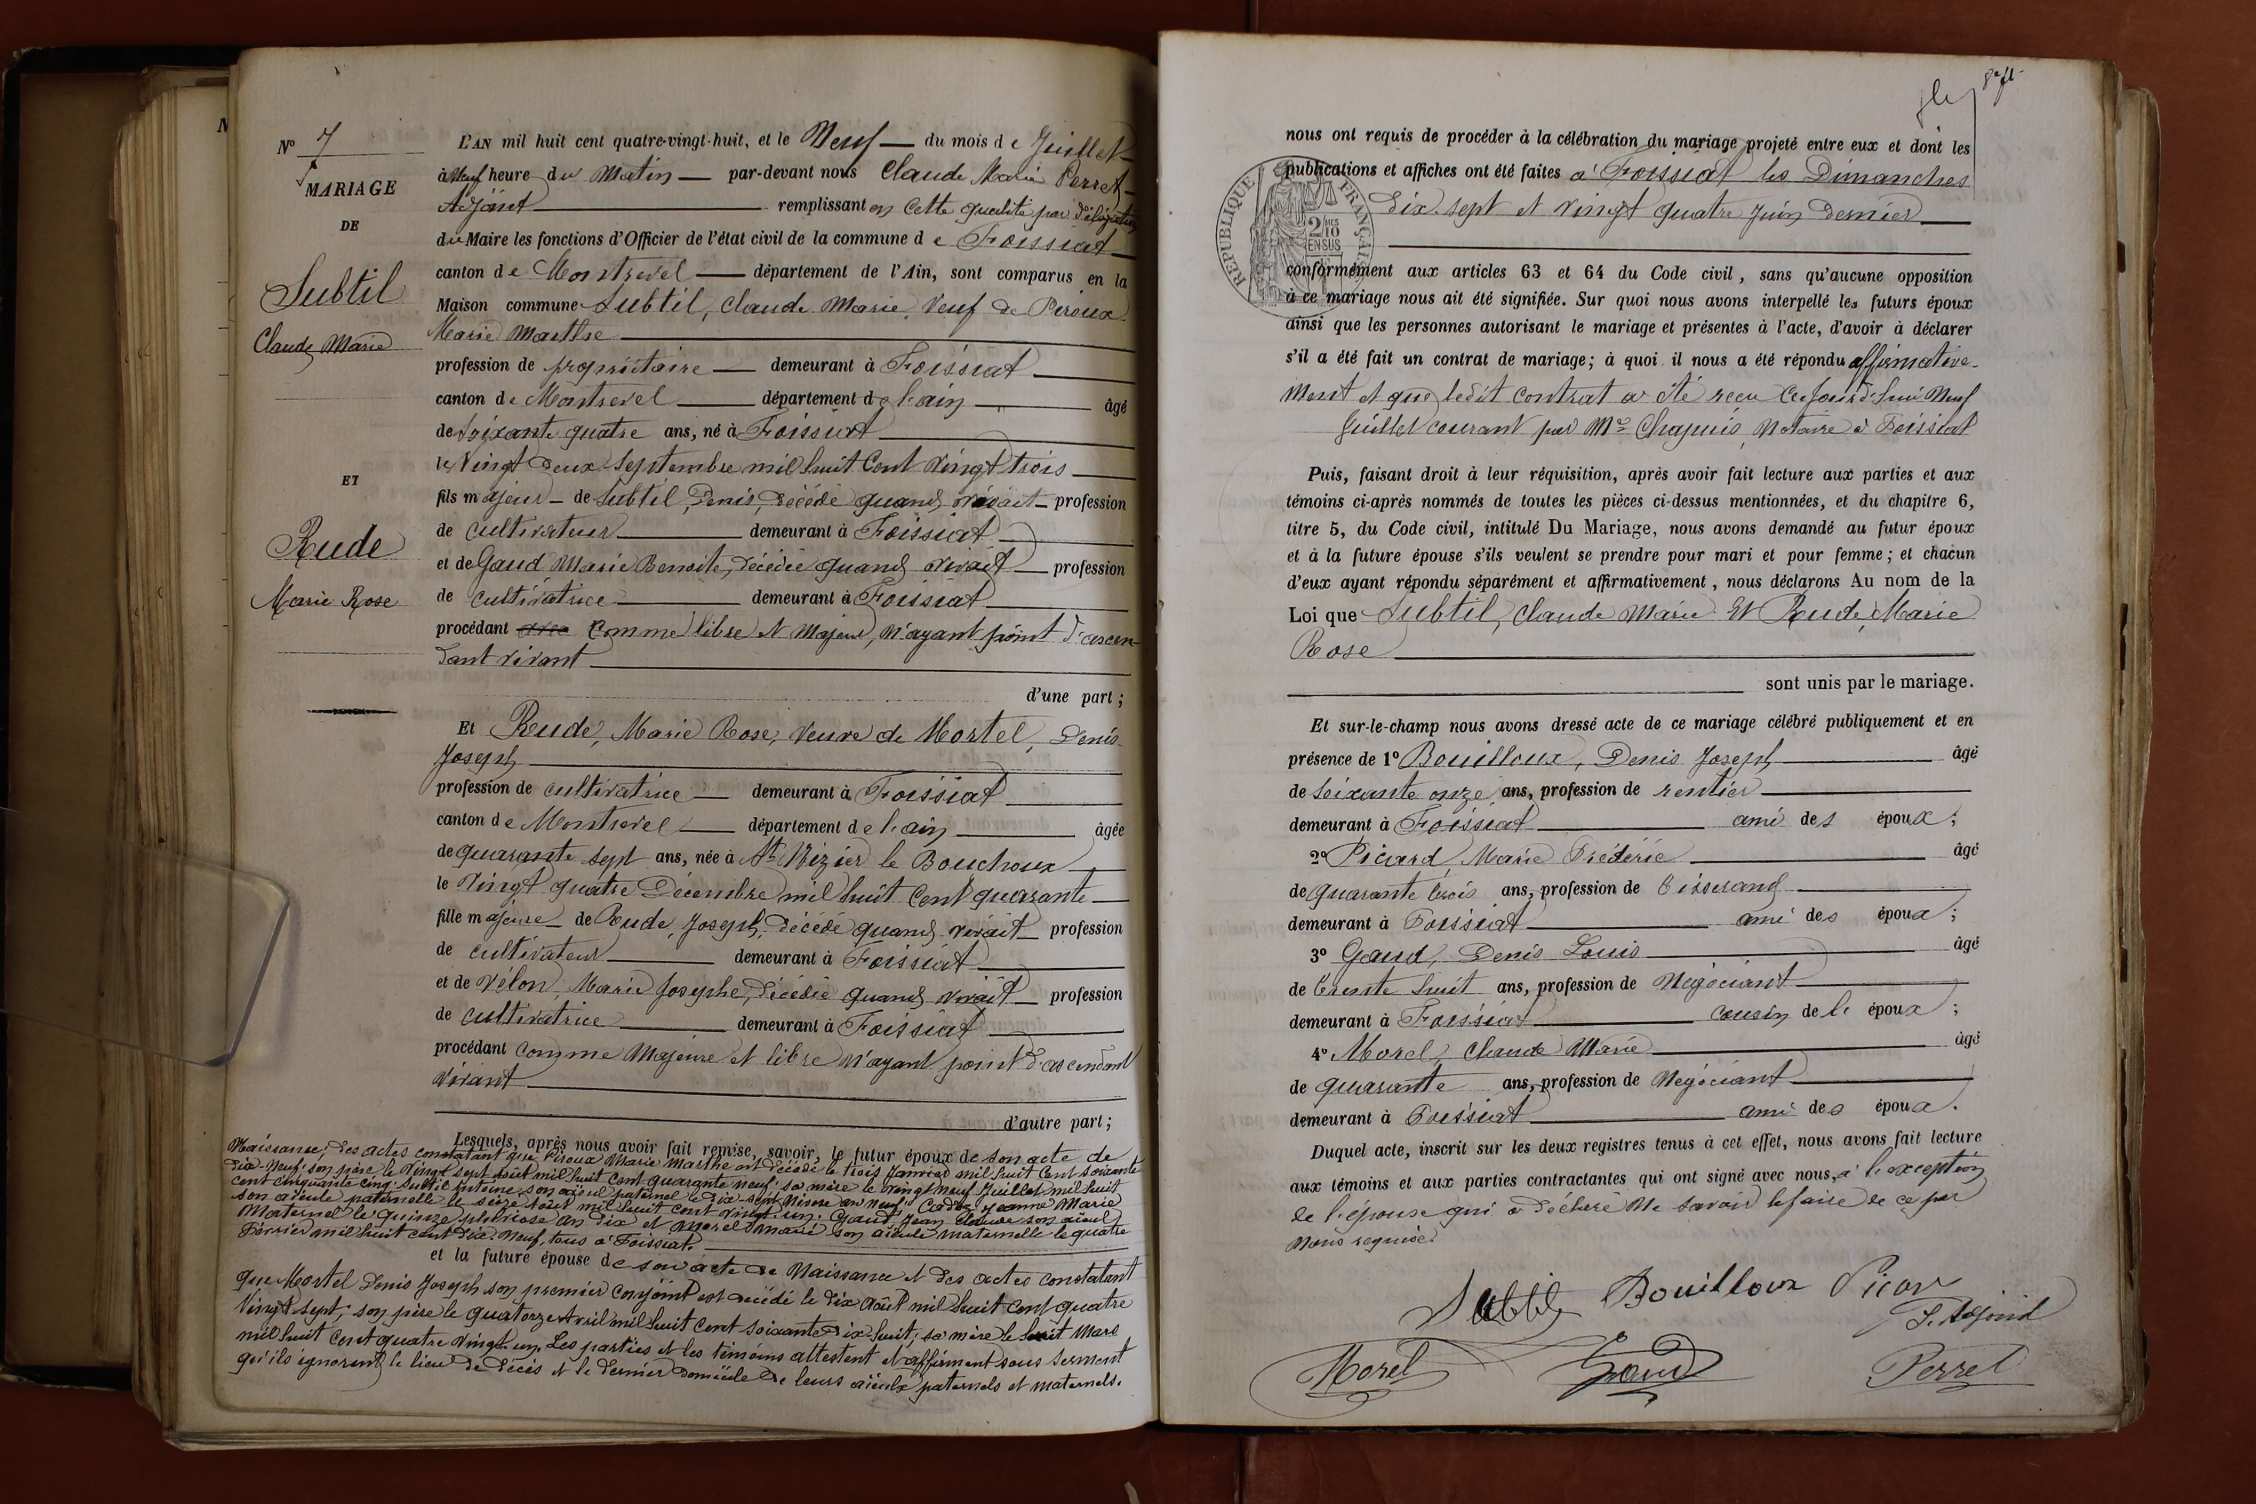 N° 7
MARIAGE
DE
Subtil
Claude Marie
ET
Rude
Marie Rose
L'AN mil huit cent quatre-vingt-huit, et le Neuf du mois de Juillet
à Neuf heure du Matin par-devant nous Claude Marie Perret
Adjoint remplissant en cette qualité par délégation
du Maire les fonctions d'Officier de l'état civil de la commune de Foissiat
canton de Montrevel département de l'Ain, sont comparus en la
Maison commune Subtil, Claude Marie, Veuf de Piroux
Marie Marthe
profession de propriétaire demeurant à Foissiat
canton de Montrevel département de l'ain âgé
de Soixante quatre ans, né à Foissiat
le Vingt deux Septembre mil huit Cent vingt trois
fils majeur de Subtil, Denis, décédé quand vivait profession
de cultivateur demeurant à Foissiat
et de Gaud Marie Benoite, décédée quand vivait profession
de cultivatrice demeurant à Foissiat
procédant avec Comme libre et Majeur, n'ayant point d'ascen-
dant vivant
d'une part ;
Et Rude, Marie Rose, Veuve de Mortel, Denis
Joseph
profession de cultivatrice demeurant à Foissiat
canton de Montrevel département de l'ain âgée
de quarante sept ans, née à St Nizier le Bouchoux
le Vingt quatre Décembre mil huit Cent quarante
fille majeure de Rude, Joseph, décédé quand vivait profession
de cultivateur demeurant à Foissiat
et de Vélon, Marie Josephe, décédée quand vivait profession
de cultivatrice demeurant à Foissiat
procédant comme Majeure et libre n'ayant point d'ascendant
vivant
d'autre part ;
Lesquels, après nous avoir fait remise, savoir, le futur époux de son acte de
Naissance, des actes constatant que Piroux Marie Marthe est décédée le trois Janvier mil huit Cent soixante
dix-neuf; son père le Vingt sept août mil huit Cent quarante neuf; sa mère le vingt neuf Juillet mil huit
cent cinquante cinq; Subtil Antoine son aïeul paternel le dix sept Nivose an neuf; Jeanne Marie
son aïeule paternelle le seize août mil huit Cent vingt un; Gaud, Jean Claude son aïeul
Maternel le quinze pluviose an dix et Morel Marie son aïeule maternelle le quatre
Février mil huit cent dix-neuf, tous à Foissiat.
et la future épouse de son acte de Naissance et des actes constatant
que Mortel Denis Joseph son premier conjoint est décédé le dix août mil huit Cent quatre
Vingt sept; son père le quatorze Avril mil huit Cent soixante dix huit; sa mère le huit Mars
mil huit Cent quatre vingt un. Les parties et les témoins attestent et affirment sous serment
qu'ils ignorent le lieu de décès et le dernier domicile de leurs aïeuls paternels et maternels.
nous ont requis de procéder à la célébration du mariage projeté entre eux et dont les
publications et affiches ont été faites à Foissiat les Dimanches
Dix-sept et vingt quatre Juin dernier
RÉPUBLIQUE FRANÇAISE
2/10 EN SUS
conformément aux articles 63 et 64 du Code civil, sans qu'aucune opposition
à ce mariage nous ait été signifiée. Sur quoi nous avons interpellé les futurs époux
ainsi que les personnes autorisant le mariage et présentes à l'acte, d'avoir à déclarer
s'il a été fait un contrat de mariage; à quoi il nous a été répondu affirmative-
ment et que ledit contrat a été reçu Cejourd'hui Neuf
Juillet courant par Me Chapuis, Notaire à Foissiat
Puis, faisant droit à leur réquisition, après avoir fait lecture aux parties et aux
témoins ci-après nommés de toutes les pièces ci-dessus mentionnées, et du chapitre 6,
titre 5, du Code civil, intitulé Du Mariage, nous avons demandé au futur époux
et à la future épouse s'ils veulent se prendre pour mari et pour femme; et chacun
d'eux ayant répondu séparément et affirmativement, nous déclarons Au nom de la
Loi que Subtil, Claude Marie Et Rude, Marie
Rose
sont unis par le mariage.
Et sur-le-champ nous avons dressé acte de ce mariage célébré publiquement et en
présence de 1° Bouilloux, Denis Joseph âgé
de Soixante onze ans, profession de rentier
demeurant à Foissiat ami des époux;
2° Picard, Marie Frédéric âgé
de quarante trois ans, profession de tisserand
demeurant à Foissiat ami des époux;
3° Gaud, Denis Louis âgé
de trente huit ans, profession de Négociant
demeurant à Foissiat cousin de l' époux;
4° Morel, Claude Marie âgé
de quarante ans, profession de Négociant
demeurant à Foissiat ami des époux.
Duquel acte, inscrit sur les deux registres tenus à cet effet, nous avons fait lecture
aux témoins et aux parties contractantes qui ont signé avec nous, à l'exception
de l'épouse qui a déclaré ne savoir le faire de ce par
Nous requise.
Subtil Bouilloux Picar
L. Adjoint
Morel Gaud Perret